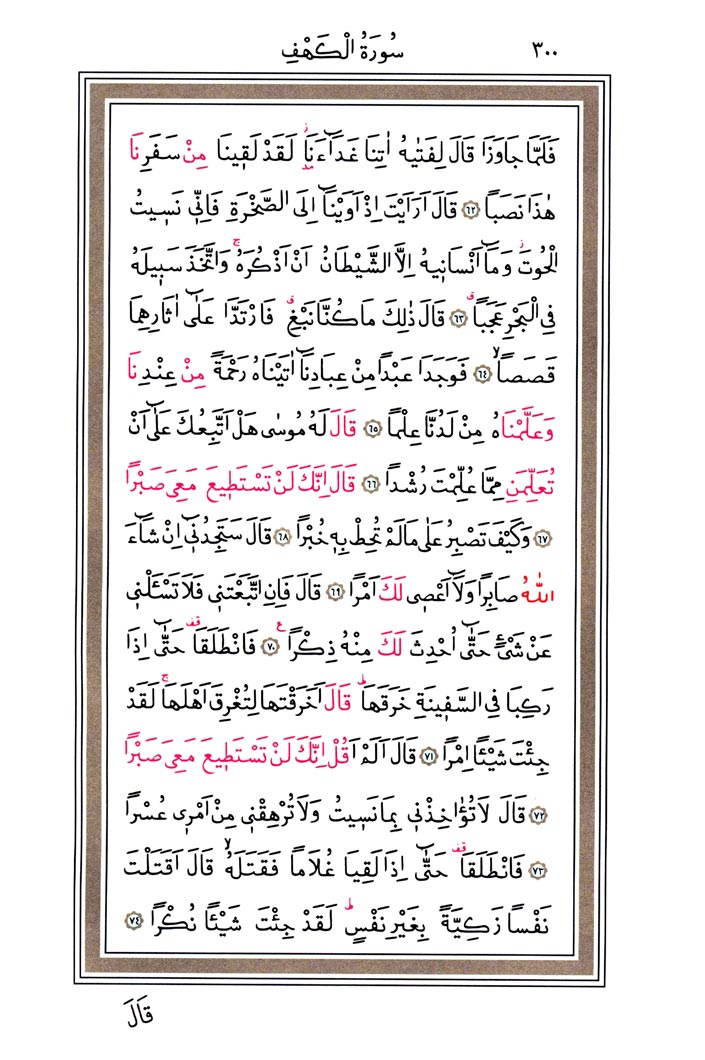 ٣٠٠ سُورَةُ الْكَهْفِ
فَلَمَّا جَاوَزَا قَالَ لِفَتٰيهُ اٰتِنَا غَدَٓاءَنَاۘ لَقَدْ لَقٖينَا مِنْ سَفَرِنَا
هٰذَا نَصَباً ﴿٦٢﴾ قَالَ اَرَاَيْتَ اِذْ اَوَيْنَٓا اِلَى الصَّخْرَةِ فَاِنّٖي نَسٖيتُ
الْحُوتَؗ وَمَٓا اَنْسَانٖيهُ اِلَّا الشَّيْطَانُ اَنْ اَذْكُرَهُۚ وَاتَّخَذَ سَبٖيلَهُ
فِي الْبَحْرِ عَجَباً ﴿٦٣﴾ قَالَ ذٰلِكَ مَا كُنَّا نَبْغِ فَارْتَدَّا عَلٰٓى اٰثَارِهِمَا
قَصَصاًۙ ﴿٦٤﴾ فَوَجَدَا عَبْداً مِنْ عِبَادِنَٓا اٰتَيْنَاهُ رَحْمَةً مِنْ عِنْدِنَا
وَعَلَّمْنَاهُ مِنْ لَدُنَّا عِلْماً ﴿٦٥﴾ قَالَ لَهُ مُوسٰى هَلْ اَتَّبِعُكَ عَلٰٓى اَنْ
تُعَلِّمَنِ مِمَّا عُلِّمْتَ رُشْداً ﴿٦٦﴾ قَالَ اِنَّكَ لَنْ تَسْتَطٖيعَ مَعِيَ صَبْراً
﴿٦٧﴾ وَكَيْفَ تَصْبِرُ عَلٰى مَا لَمْ تُحِطْ بِهٖ خُبْراً ﴿٦٨﴾ قَالَ سَتَجِدُنٖٓي اِنْ شَٓاءَ
اللّٰهُ صَابِراً وَلَٓا اَعْصٖي لَكَ اَمْراً ﴿٦٩﴾ قَالَ فَاِنِ اتَّبَعْتَنٖي فَلَا تَسْـَٔلْنٖي
عَنْ شَيْءٍ حَتّٰٓى اُحْدِثَ لَكَ مِنْهُ ذِكْراًࣖ ﴿٧٠﴾ فَانْطَلَقَا حَتّٰٓى اِذَا
رَكِبَا فِي السَّفٖينَةِ خَرَقَهَاؕ قَالَ اَخَرَقْتَهَا لِتُغْرِقَ اَهْلَهَاۚ لَقَدْ
جِئْتَ شَيْـٔاً اِمْراً ﴿٧١﴾ قَالَ اَلَمْ اَقُلْ اِنَّكَ لَنْ تَسْتَطٖيعَ مَعِيَ صَبْراً
﴿٧٢﴾ قَالَ لَا تُؤَاخِذْنٖي بِمَا نَسٖيتُ وَلَا تُرْهِقْنٖي مِنْ اَمْرٖي عُسْراً
﴿٧٣﴾ فَانْطَلَقَا حَتّٰٓى اِذَا لَقِيَا غُلَاماً فَقَتَلَهُۙ قَالَ اَقَتَلْتَ
نَفْساً زَكِيَّةً بِغَيْرِ نَفْسٍؕ لَقَدْ جِئْتَ شَيْـٔاً نُكْراً ﴿٧٤﴾
قَالَ